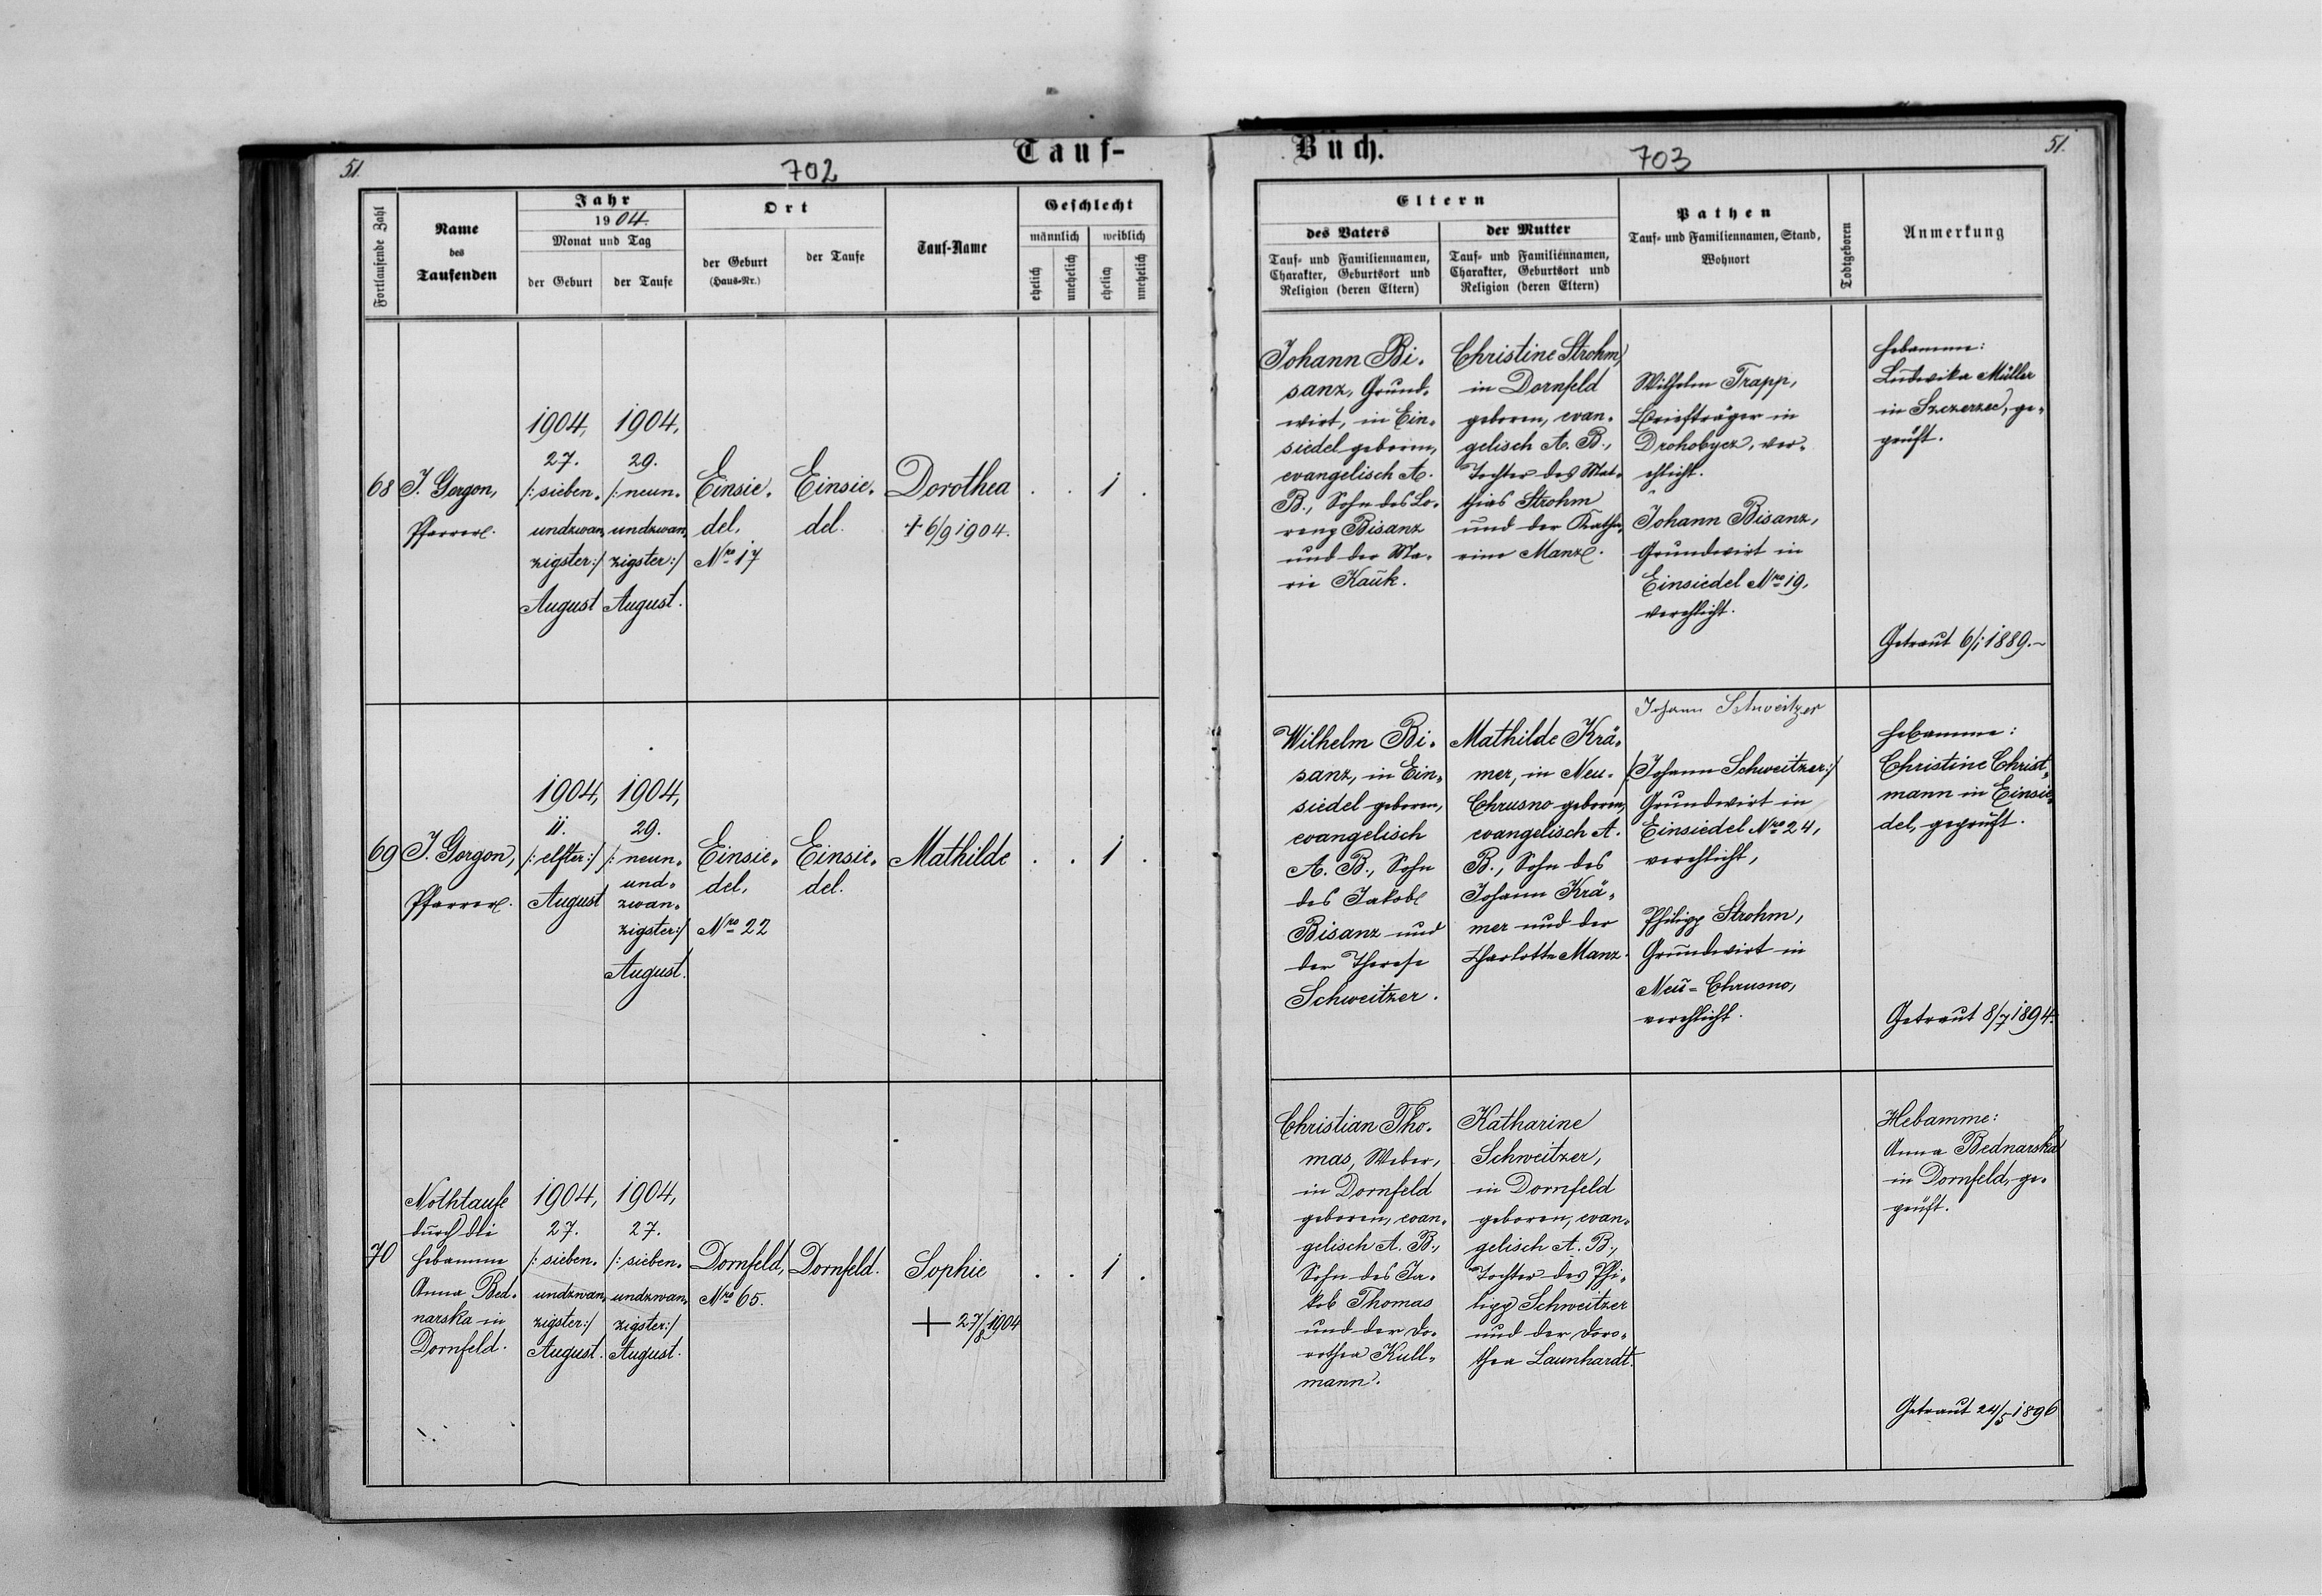 51.
702
Tauf-
Fortlaufende Zahl
Name
des
Taufenden
Jahr
1904.
Monat und Tag
der Geburt
der Taufe
Ort
der Geburt
(Haus-Nr.)
der Taufe
Tauf-Name
Geschlecht
männlich
weiblich
ehelich
unehelich
ehelich
unehelich
68
J. Gorgon,
Pfarrer.
1904,
27.
/: sieben-
undzwan-
zigster :/
August
1904,
29.
/: neun-
undzwan-
zigster :/
August.
Einsie-
del,
Nro 17
Einsie-
del.
Dorothea
+ 6/9 1904.
. . 1 .
69
J. Gorgon,
Pfarrer.
1904,
11.
/: elfter :/
August
1904,
29.
/: neun-
und-
zwan-
zigster :/
August.
Einsie-
del,
Nro 22
Einsie-
del.
Mathilde
. . 1 .
70
Nothtaufe
durch die
Hebamme
Anna Bed-
narska in
Dornfeld.
1904,
27.
/: sieben-
undzwan-
zigster :/
August.
1904,
27.
/: sieben-
undzwan-
zigster :/
August.
Dornfeld,
Nro 65.
Dornfeld.
Sophie
+ 27/8 1904
. . 1 .
Buch.
703
51.
Eltern
des Vaters
Tauf- und Familiennamen,
Charakter, Geburtsort und
Religion (deren Eltern)
der Mutter
Tauf- und Familiennamen,
Charakter, Geburtsort und
Religion (deren Eltern)
Pathen
Tauf- und Familiennamen, Stand,
Wohnort
Todtgeboren
Anmerkung
Johann Bi-
sanz, Grund-
wirt, in Ein-
siedel geboren,
evangelisch A.
B., Sohn des Lo-
renz Bisanz
und der Ma-
rie Kauk.
Christine Strohm,
in Dornfeld
geboren, evan-
gelisch A. B.,
Tochter des Mat-
thias Strohm
und der Katha-
rine Manz.
Wilhelm Trapp,
Briefträger in
Drohobycz, ver-
ehlicht.
Johann Bisanz,
Grundwirt in
Einsiedel Nro 19,
verehlicht.
Hebamme:
Ludwika Müller
in Szczerzec, ge-
prüft.
Getraut 6/1 1889.
Wilhelm Bi-
sanz, in Ein-
siedel geboren,
evangelisch
A. B., Sohn
des Jakob
Bisanz und
der Therese
Schweitzer.
Mathilde Krä-
mer, in Neu-
Chrusno geboren,
evangelisch A.
B., Sohn des
Johann Krä-
mer und der
Charlotte Manz.
Johann Schweitzer
/: Johann Schweitzer :/
Grundwirt in
Einsiedel Nro 24,
verehlicht,
Philipp Strohm,
Grundwirt in
Neu-Chrusno,
verehlicht.
Hebamme:
Christine Christ-
mann in Einsie-
del, geprüft.
Getraut 8/7 1894.
Christian Tho-
mas, Weber,
in Dornfeld
geboren, evan-
gelisch A. B.,
Sohn des Ja-
kob Thomas
und der Do-
rothea Kull-
mann.
Katharine
Schweitzer,
in Dornfeld
geboren, evan-
gelisch A. B.,
Tochter des Phi-
lipp Schweitzer
und der Doro-
thea Launhardt.
Hebamme:
Anna Bednarska
in Dornfeld, ge-
prüft.
Getraut 24/5 1896